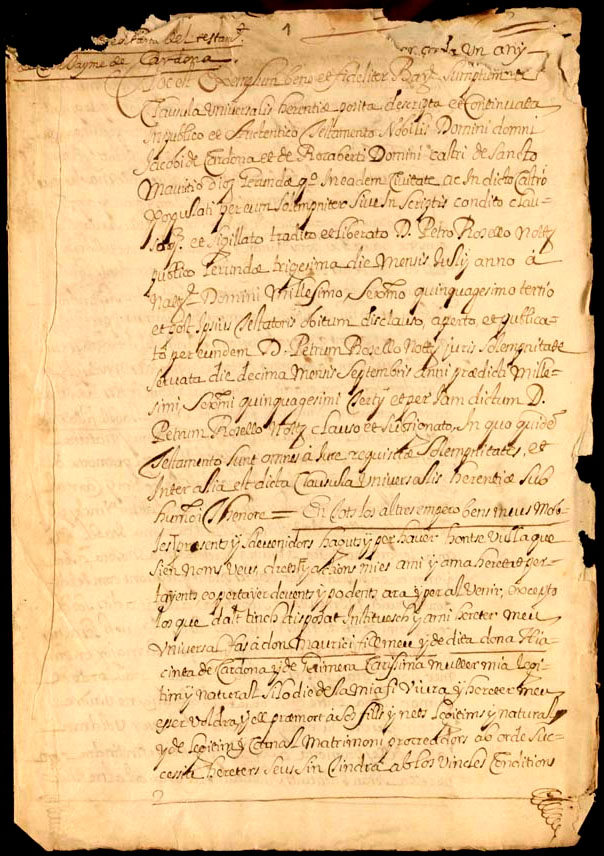 del testam.t
Jayme de Cardona.
1
un any
Hoc est Exemplum bene et fideliter sumptum
Clausula Universalis herentiæ posita descripta et Continuata
In publico et Auctentico Testamento Nobilis Domini domni
Jacobi de Cardona et de Rocaberti Domini castri de Sancto
Mauritio Gerundæ in eadem Civitate ac In dicto Castro
populati per eum solempniter sive In scriptis condito clau-
so et sigillato tradito et liberato D. Petro Rosello Nott.
publico Gerundæ trigesima die mensis Julij anno à
Nat.t Domini Millesimo, Sex.mo quinquagesimo tertio
et post Ipsius Testatoris obitum disclauso, aperto, et publica-
to per eundem D. Petrum Rosello Nott. juris solempnitate
servata die decima mensis Septembris Anni prædicti Mille-
simi, Sex.mi quinquagesimi Tertij et per Iam dictum D.
Petrum Rosello Nott. clauso et subsignato, In quo quidē
Testamento sunt omnes à Jure requisitæ Solempnitates, et
Inter alia est dicta Clausula Universalis herentiæ sub
hum.oi Thenore = En tots los altres empero bens meus mob-
les presents y sdevenidors haguts y per haver hont se vulla que
sien noms veus, drets y actions mies a mi y a ma heretat per-
tayents o pertayer devents y podents ara y per al venir, excepto
los que dalt tinch disposat Instituesch y a mi hereter meu
Universal fas à don Maurici fill meu y de dita dona Hia-
cinta de Cardona y de Carissima muller mia legi-
tim y natural si lo die de la mia fi viurà y hereter meu
esser voldra, y ell præmort à sos fills y nets legitims y naturals
y de legitim y Carnal Matrimoni procreadors ab orde suc-
cessiu hereters seus sin tindrà ab los vincles Conditions